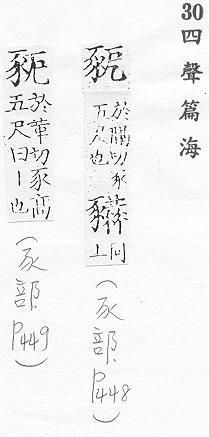 30 四聲篇海
豟
於隔切豕
五尺也
同
上
(豕部.P448)
豟
於革切豕高
五尺曰丨也
(豕部.P449)